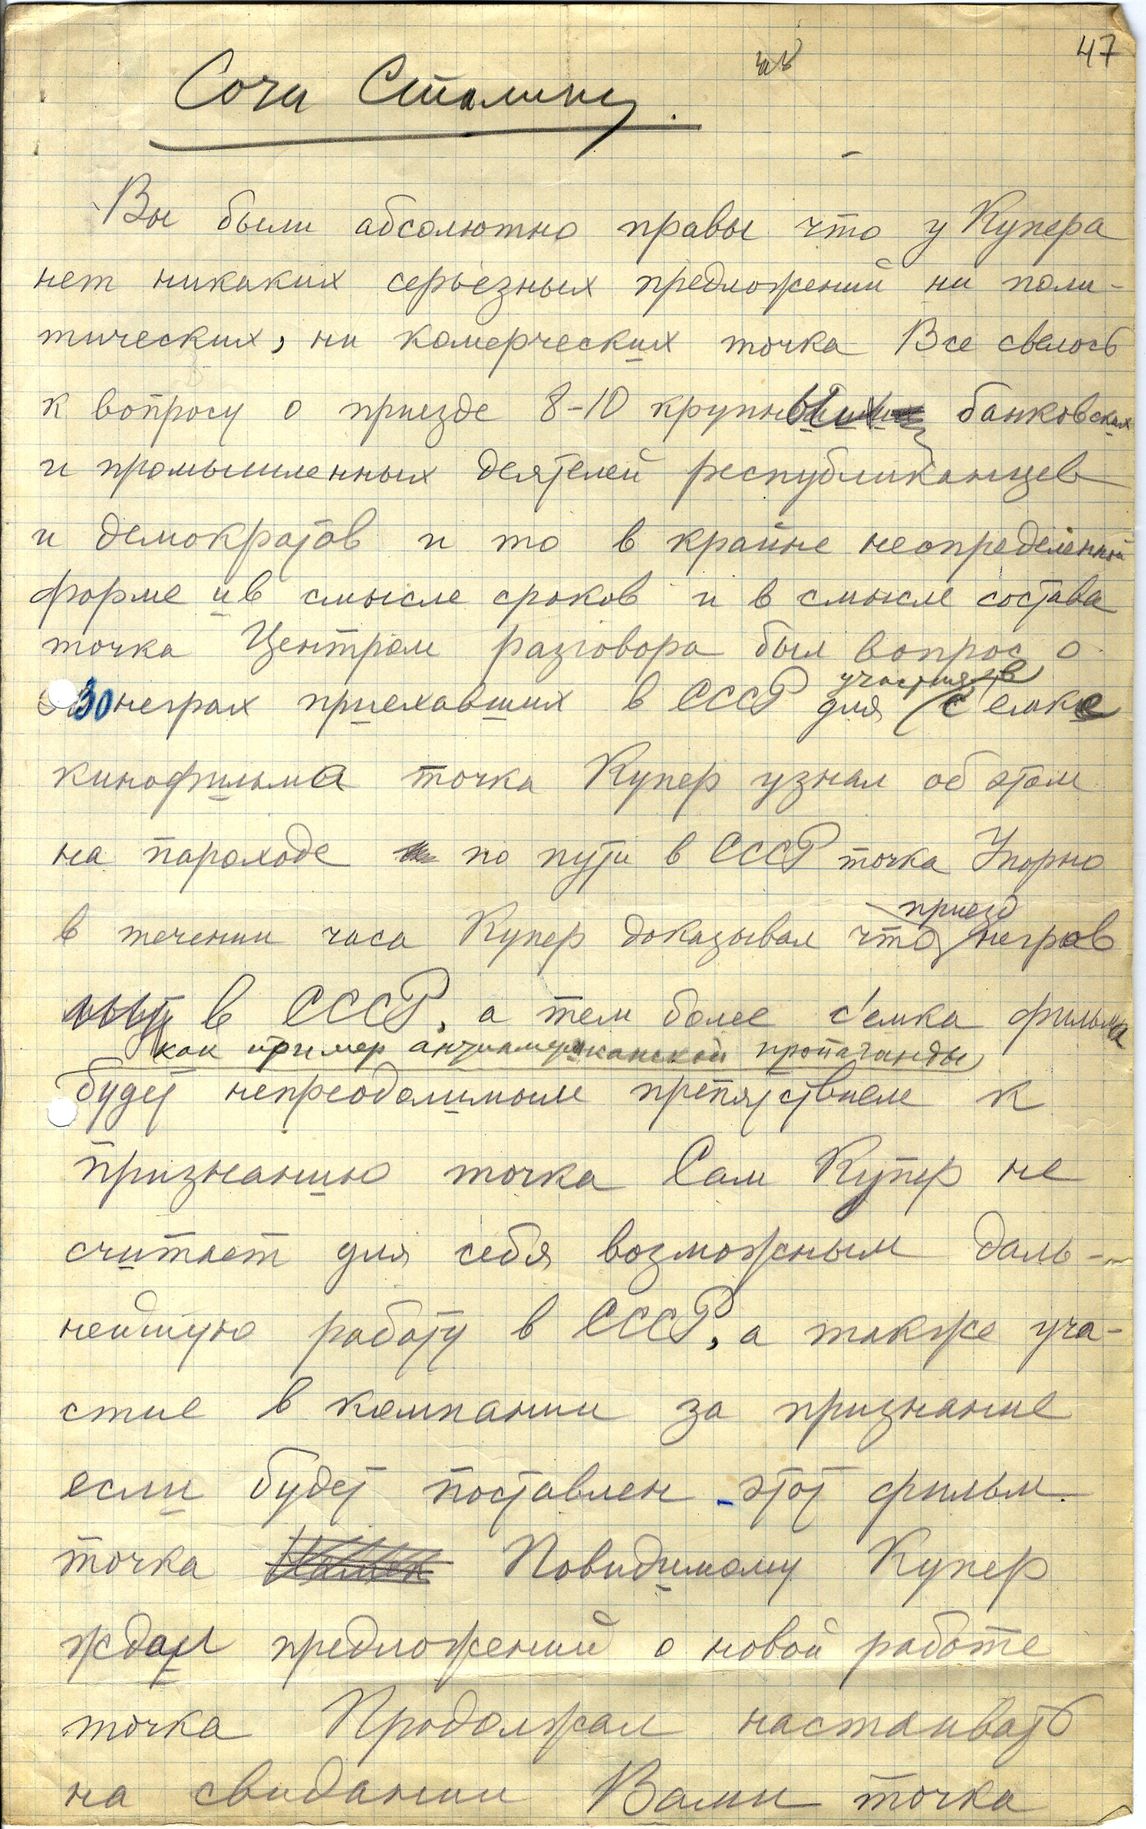 47
Сочи Сталину.
Вы были абсолютно правы что у Купера
нет никаких серьезных предложений ни поли-
тических, ни комерческих точка Все свелось
к вопросу о приезде 8-10 крупных банковских
и промышленных деятелей республиканцев
и демократов и то в крайне неопределенной
форме и в смысле сроков и в смысле состава
точка Центром разговора был вопрос о
30 неграх приехавших в СССР для участия в с'емке
кинофильма точка Купер узнал об этом
на пароходе по пути в СССР точка Упорно
в течении часа Купер доказывал что приезд негров
в СССР, а тем более с'емка фильма
как пример антиамериканской пропаганды
будет непреодолимым препятствием к
признанию точка Сам Купер не
считает для себя возможным даль-
нейшую работу в СССР, а также уча-
стие в кампании за признание
если будет поставлен этот фильм
точка Повидимому Купер
ждал предложений о новой работе
точка Продолжал настаивать
на свидании Вами точка